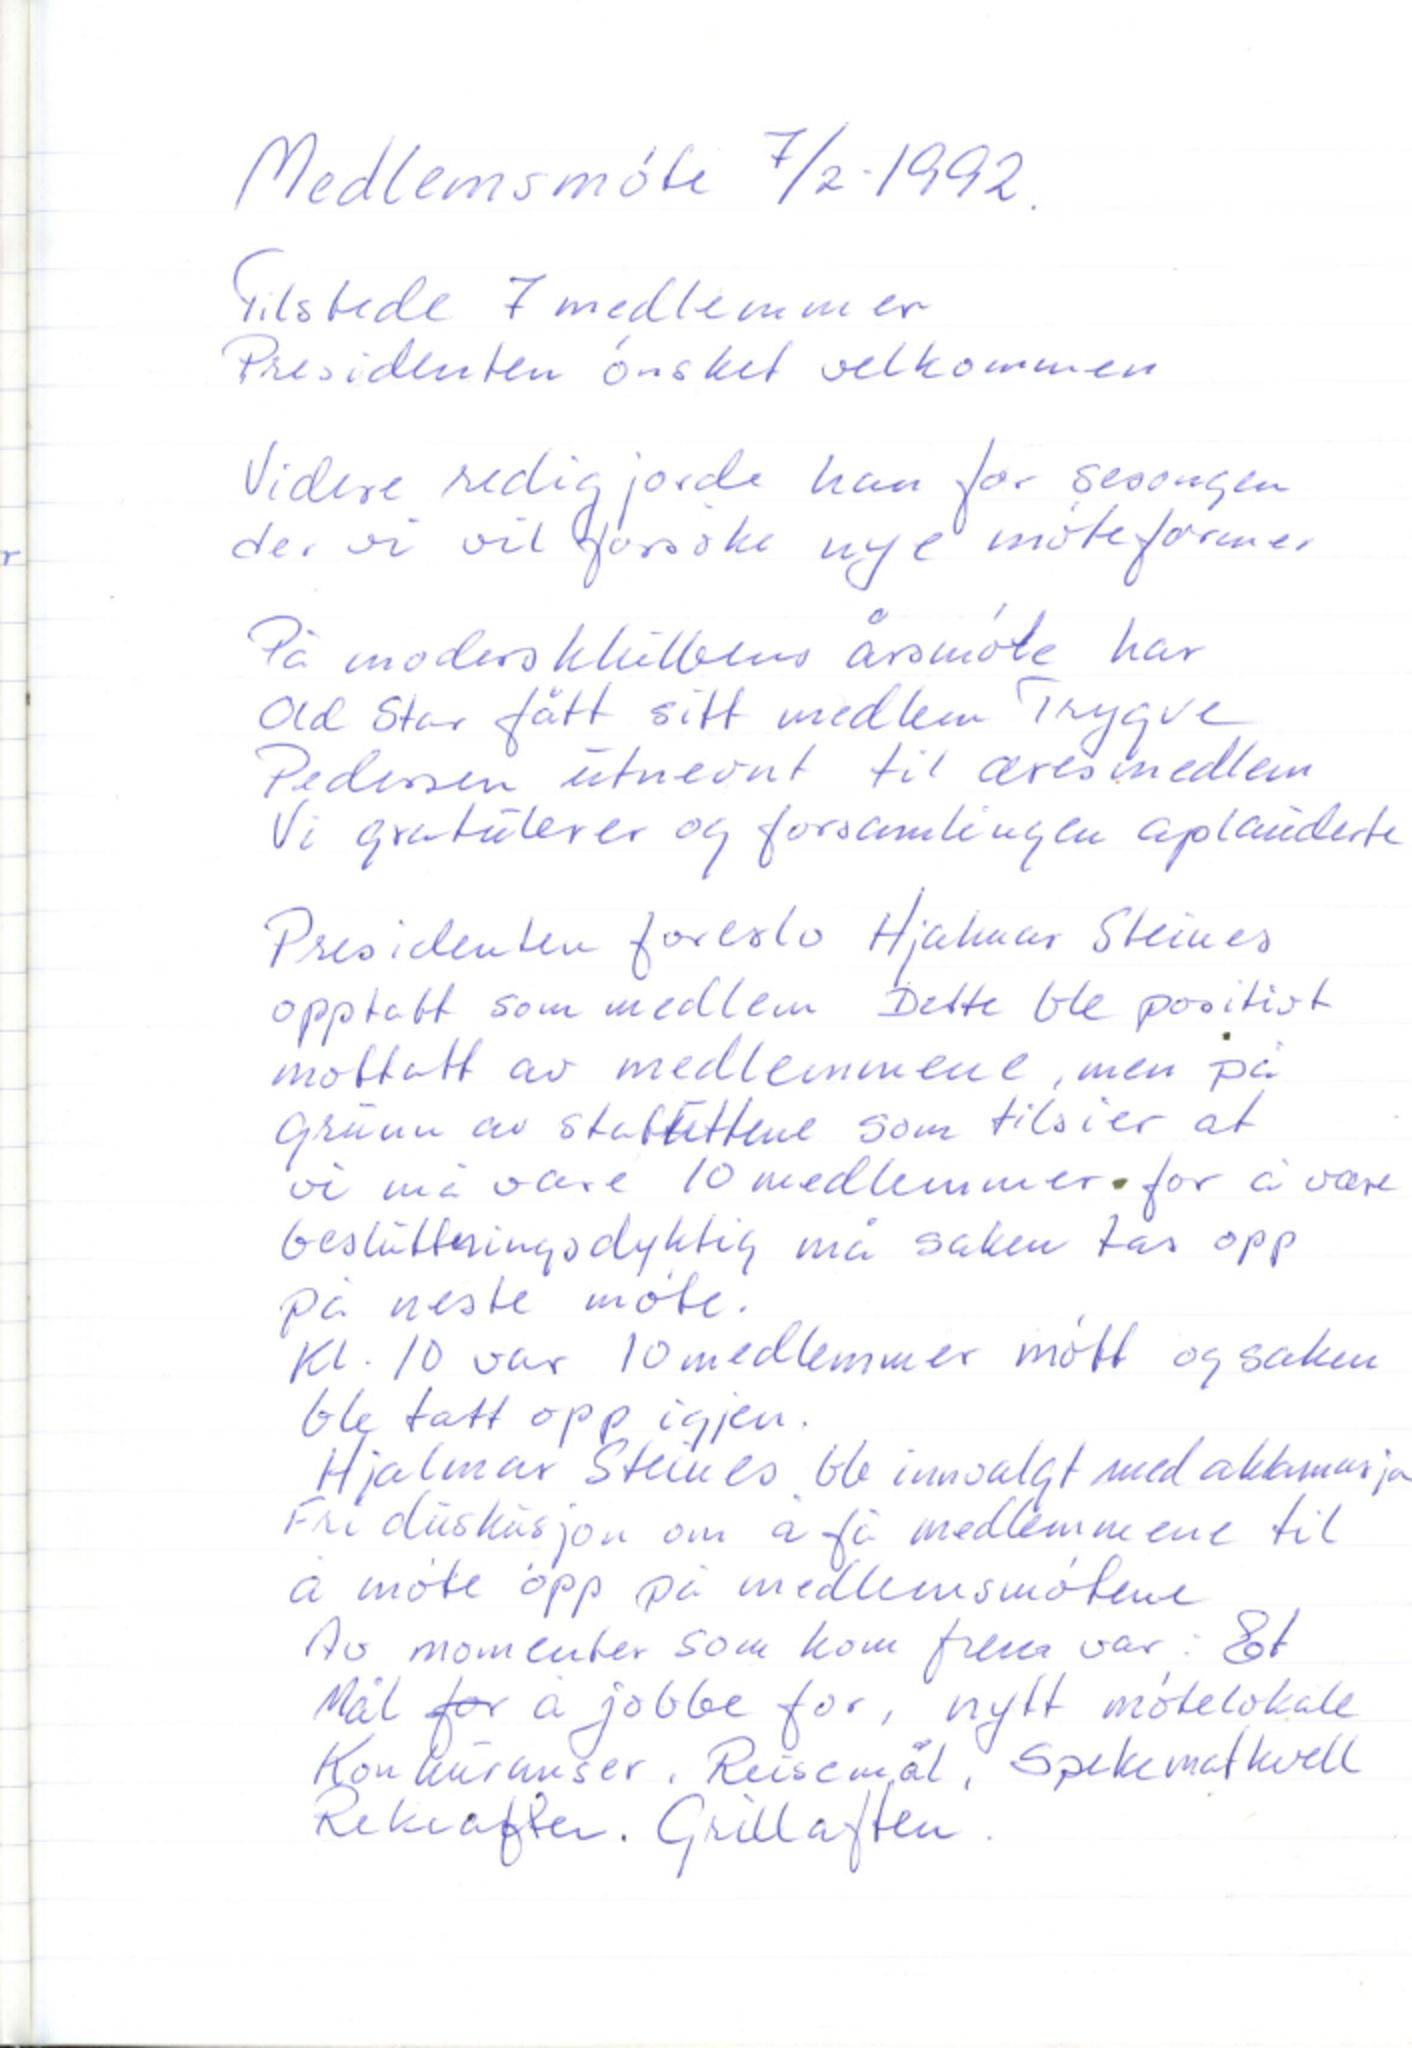 Medlemsmöte 7/2-1992.
Tilstede 7 medlemmer
Presidenten ónsket velkommen
Videre redigjorde han for sesongen
der vi vil forsöke nye móteformer
På modersklubbens årsmóte har
Old Star fått sitt medlem Trygve
Pedersen utnevnt til æresmedlem
Vi gratulerer og forsamlingen aplauderte
Presidenten foreslo Hjalmar Steines
opptatt som medlem Dette ble positivt
mottatt av medlemmene, men på
grunn av statuttene som tilsier at
vi må være 10 medlemmer for å være
beslutteringsdyktig må saken tas opp
på neste móte.
Kl. 10 var 10 medlemmer mótt og saken
ble tatt opp igjen.
Hjalmar Steines ble innvalgt med
Fri duskusjon om å få medlemmene til
å móte opp på medlemsmótene
Av momenter som kom frem var: Et
Mål for å jobbe for, nytt mótelokale
Konkuranser. Reisemål, Spekematkvell
Rekeaften. Grillaften.
r